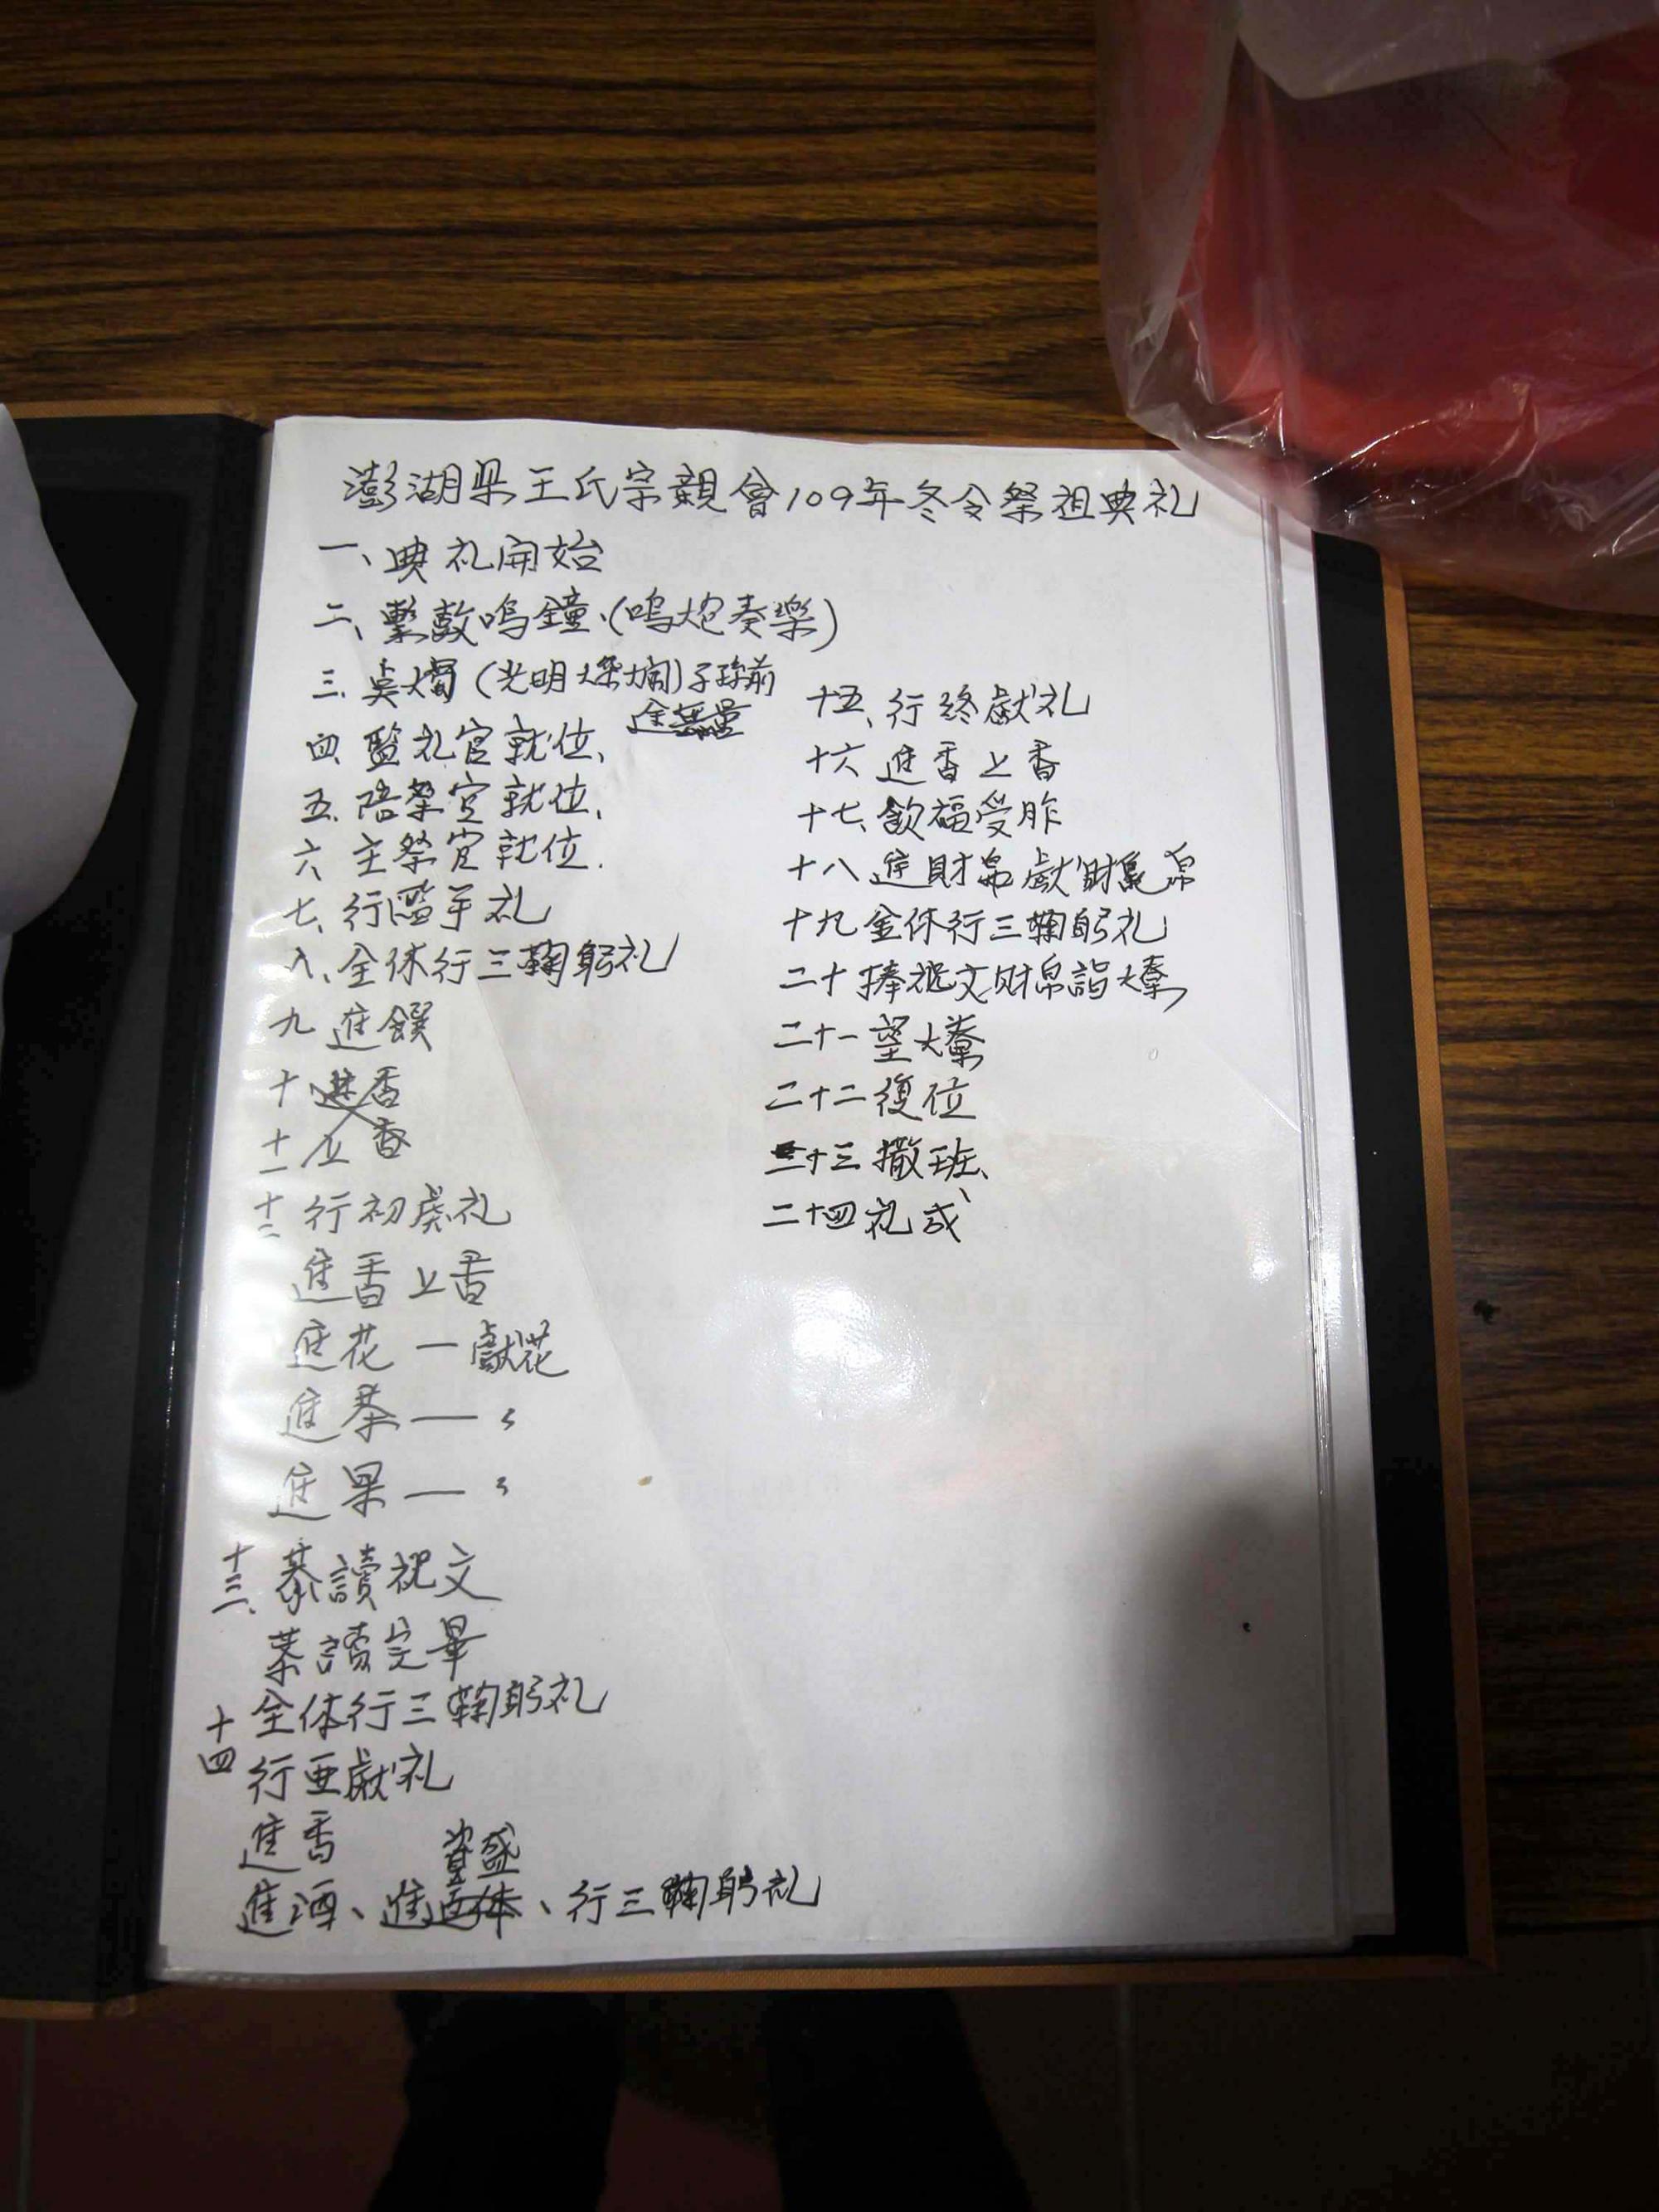 澎湖県王氏宗親會109年冬令祭祖典礼
一、典礼開始
二、擊鼓鳴鐘、(鳴炮奏樂)
三、點燭(光明燦爛)子孫前
途無量
四 監礼官就位、
五、陪祭官就位、
六 主祭官就位.
七、行盥手礼
八、全体行三鞠躬礼
九 進饌
十 進香
十一 上香
十二 行初献礼
進香上香
進花 — 獻花
進茶 — 〃
進果 — 〃
十三、恭讀祝文
恭讀完畢
全体行三鞠躬礼
十四 行亜献礼
進香
進酒、進粢盛、行三鞠躬礼
十五、行終獻礼
十六 進香上香
十七、飲福受胙
十八 進財帛獻財帛
十九 全体行三鞠躬礼
二十 捧祝文財帛詣燎
二十一 望燎
二十二 復位
二十三 撤班、
二十四 礼成